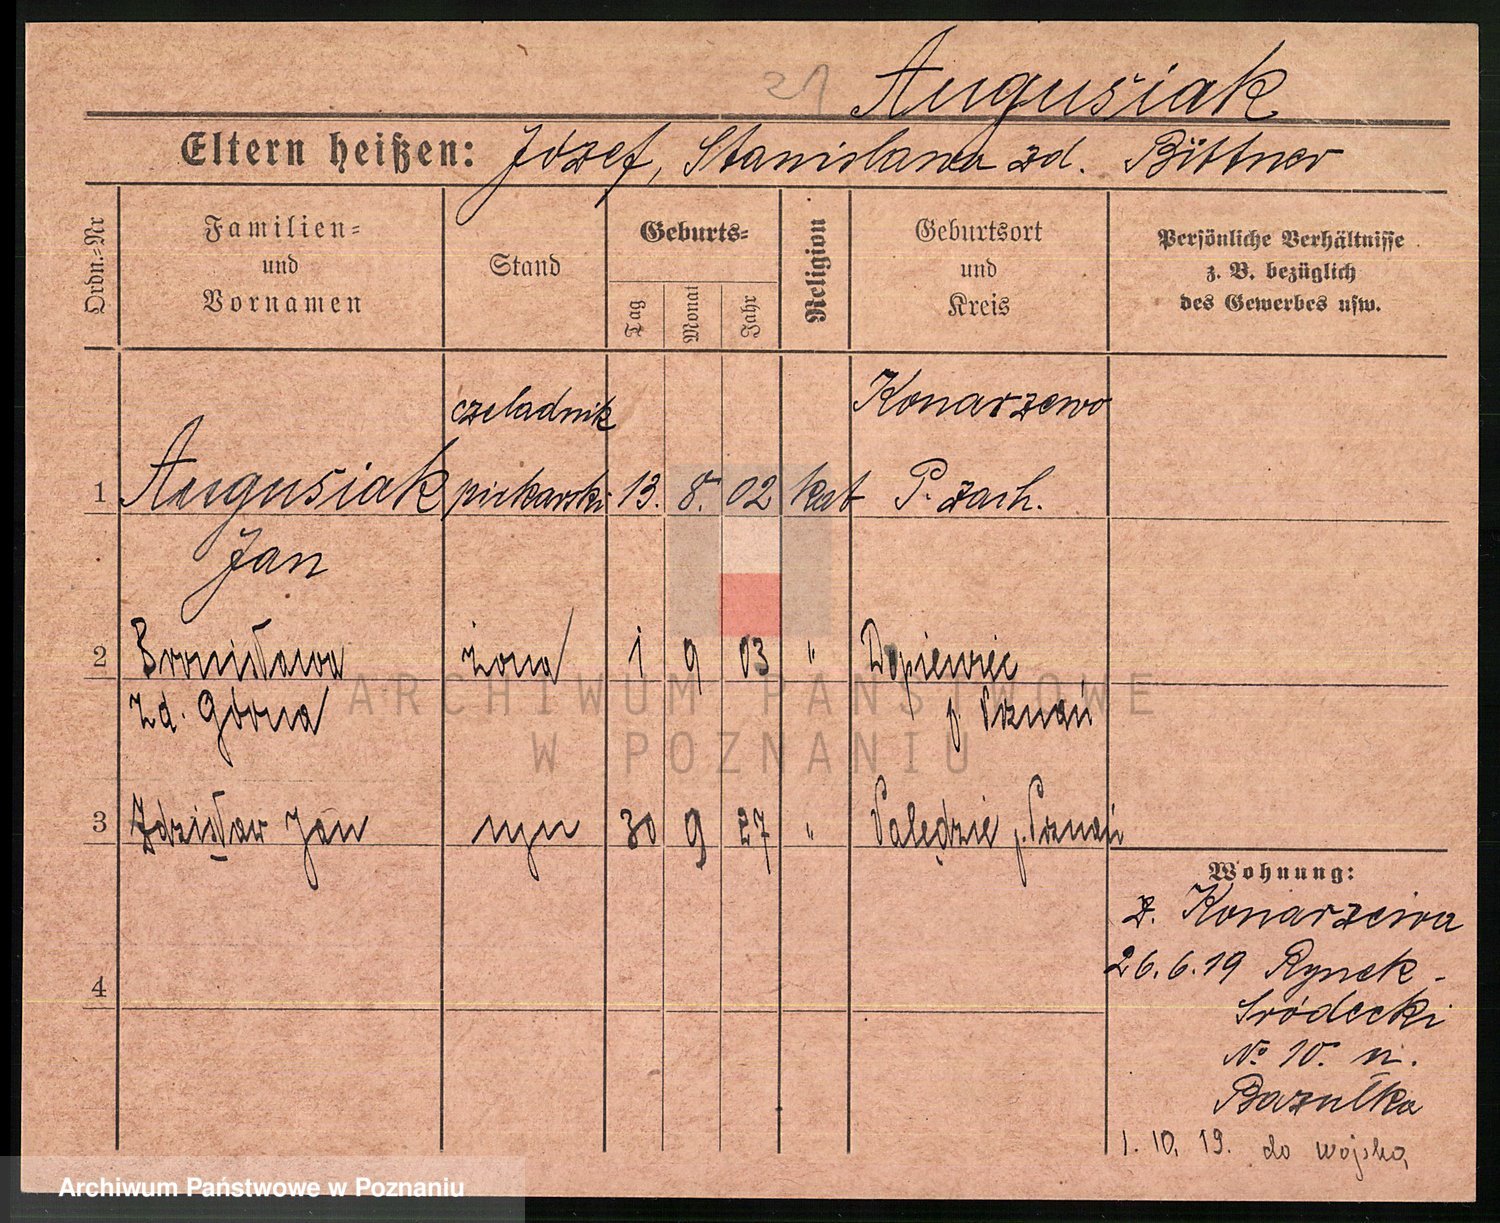 21 Augusiak
Eltern heißen: Józef, Stanisława zd. Bittner
Ordn.=Nr
Familien=
und
Vornamen
Stand
Geburts=
Tag
Monat
Jahr
Religion
Geburtsort
und
Kreis
Persönliche Verhältnisse
z. B. bezüglich
des Gewerbes usw.
czeladnik Konarzewo
1 Augusiak piekarski 13. 8. 02 kat P. zach.
Jan
2 Bronisława żona 1 9 03 " Dopiewiec
zd. Górna p. Poznań
3 Zdzisław Jan syn 30 9 27 " Palędzie p. Poznań
4
Wohnung:
z. Konarzewa
26.6.19 Rynek-
Śródecki
No 10. u.
1. 10. 19. do wojska
ARCHIWUM PAŃSTWOWE
W POZNANIU
Archiwum Państwowe w Poznaniu